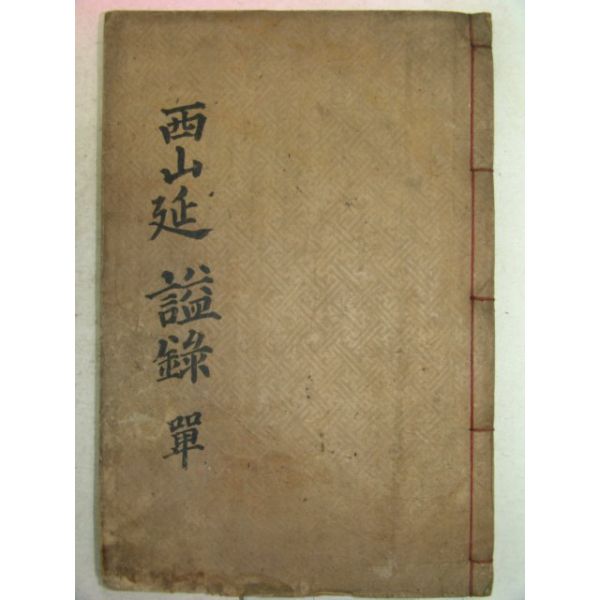 西山延諡錄 單